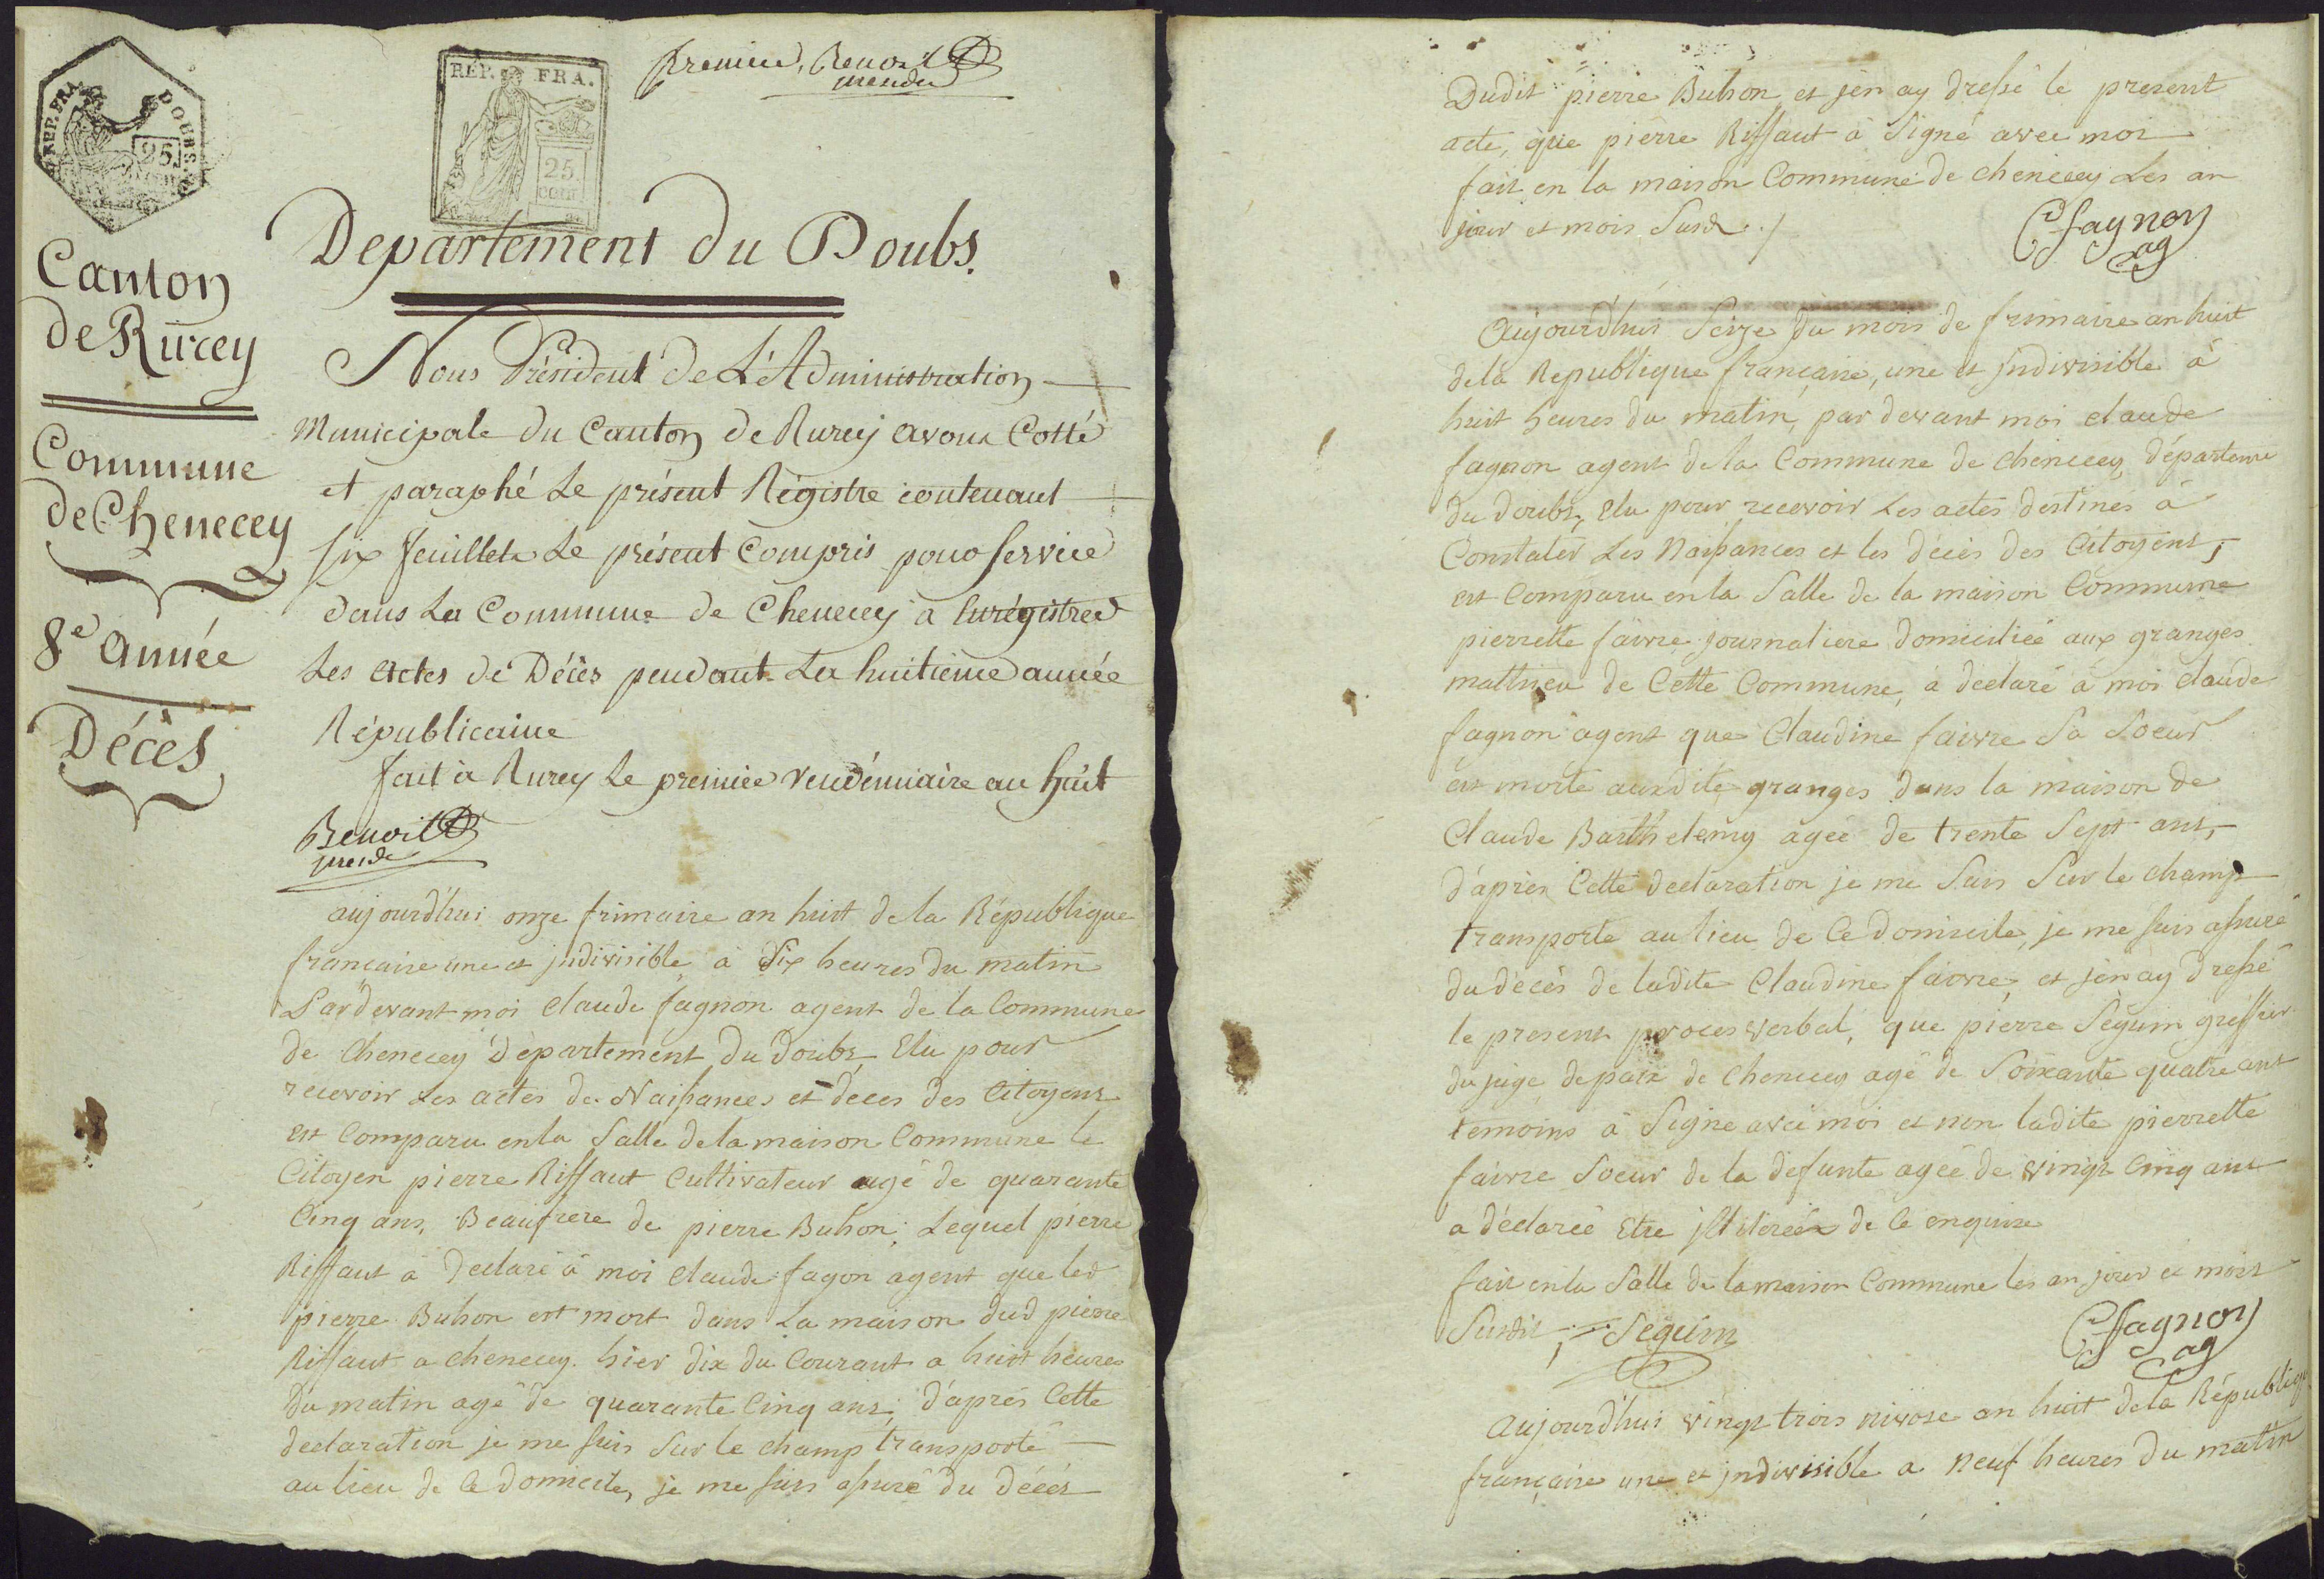 premier, Benoit
RÉP. FRA.
25.
REP. FRA. DOUBS.
25.
Canton
de Rurey
Commune
de Chenecey
8e année
Décès
Departement du Doubs.
Nous Président de L'Administration
Municipale du Canton de Rurey avons Cotté
et paraphé Le présent Régistre contenant
six feuillets Le présent Compris pour servire
dans La Commune de Chenecey a Enrégistrer
Les Actes de Décès pendant La huitième année
Républicaine
fait à Rurey Le premier vendémiaire an huit
Benoit
aujourd'hui onze frimaire an huit de la République
francaise une et jndivisible à dix heures du matin
Pardevant moi Claude fagnon agent de la Commune
de Chenecey département du Doubs, Elu pour
recevoir Les actes de Naissances et deces des Citoyens
est Comparu en la Salle de la maison Commune le
Citoyen pierre Riffaut Cultivateur agé de quarante
Cinq ans, Beaufrere de pierre Buhon; Lequel pierre
Riffaut à declaré à moi Claude fagon agent que led
pierre Buhon est mort dans La maison dud pierre
Riffaut a chenecey hier dix du Courant a huit heures
du matin agé de quarante Cinq ans; d'après Cette
declaration je me suis Sur le champ transporté
au lieu de Ce domicile, je me suis assuré du décés
Dudit pierre Buhon et jen ay dressé le present
acte, que pierre Riffaut à Signé avec moi
fait en la maison Commune de chenecey Les an
jour et mois Susd ./
C fagnon
ag
Aujourd'hui Seize du mois de frimaire an huit
de la Republique francaise, une et jndivisible à
huit heures du matin, par devant moi claude
fagnon agent de la Commune de chenecey département
du doubs, Elu pour recevoir Les actes destinés à
Constater Les Naissances et les décès des Citoyens,
est Comparu en la Salle de la maison Commune
pierrette faivre journaliere domiciliée aux granges
mathieu de Cette Commune, à declaré à moi Claude
fagnon agent que Claudine faivre Sa Soeur
est morte auxdite granges dans la maison de
Claude Barthelemy agée de trente Sept ans,
d'après Cette declaration je me Suis Sur le champ
transporté au lieu de Ce domicile, je me suis assuré
du décès de ladite Claudine faivre, et jen ay dressé
le present proces verbal, que pierre Seguin greffier
du juge de paix de Chenecey agé de Soixante quatre ans
temoins à Signé avec moi et non ladite pierrette
faivre Soeur de la defunte agée de vingt Cinq ans
a déclarée Etre jlliterée de Ce enquise
fait en la Salle de la maison Commune les an, jour et mois
Susdit Seguin
C fagnon
ag
Aujourd'hui vingt trois nivose an huit de la Républiq
française une et jndivisible a neuf heures du matin